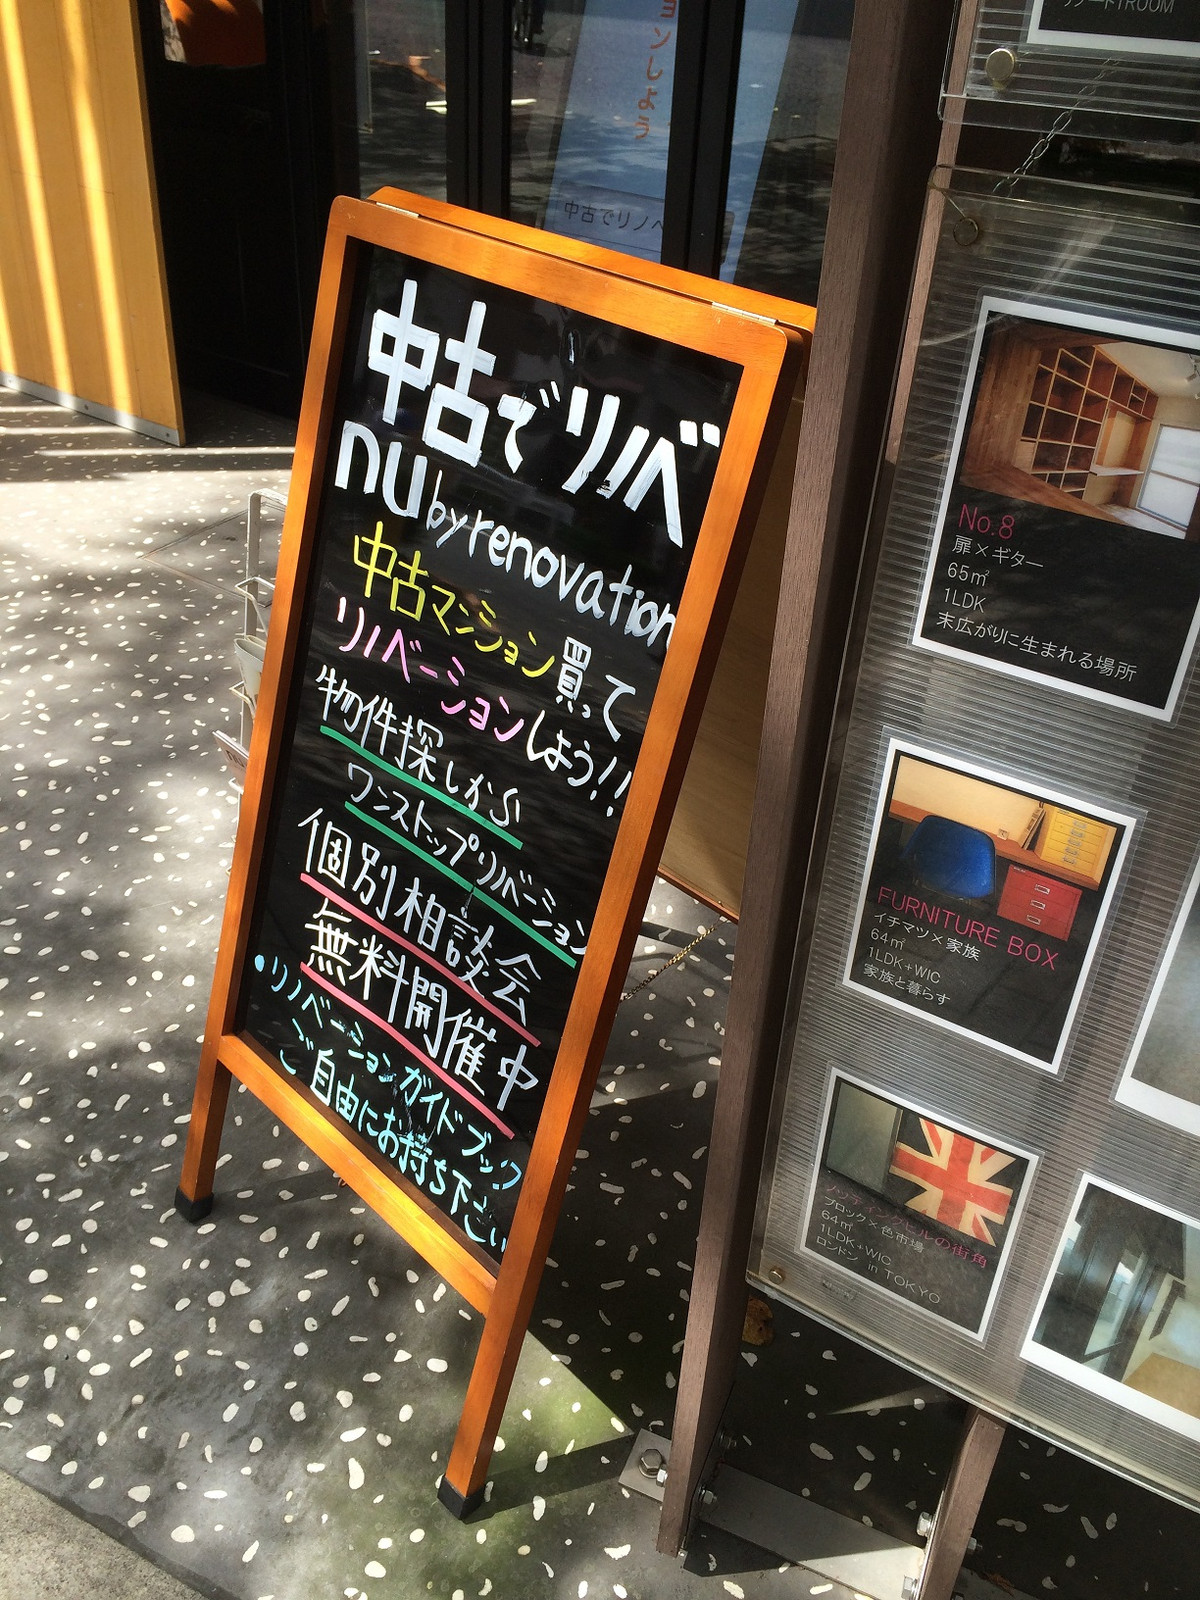 中古でリノベ
nu by renovation
中古マンション買って
リノベーションしよう!!
物件探しから
ワンストップリノベーション
個別相談会
無料開催中
•リノベーションガイドブック
ご自由にお持ち下さい
ョンしよう
中古でリノベ
No.8
扉×ギター
65㎡
1LDK
末広がりに生まれる場所
FURNITURE BOX
イチマツ×家族
64㎡
1LDK+WIC
家族と暮らす
ノッティングヒルの街角
ブロック×色市場
64㎡
1LDK+WIC
ロンドン in TOKYO